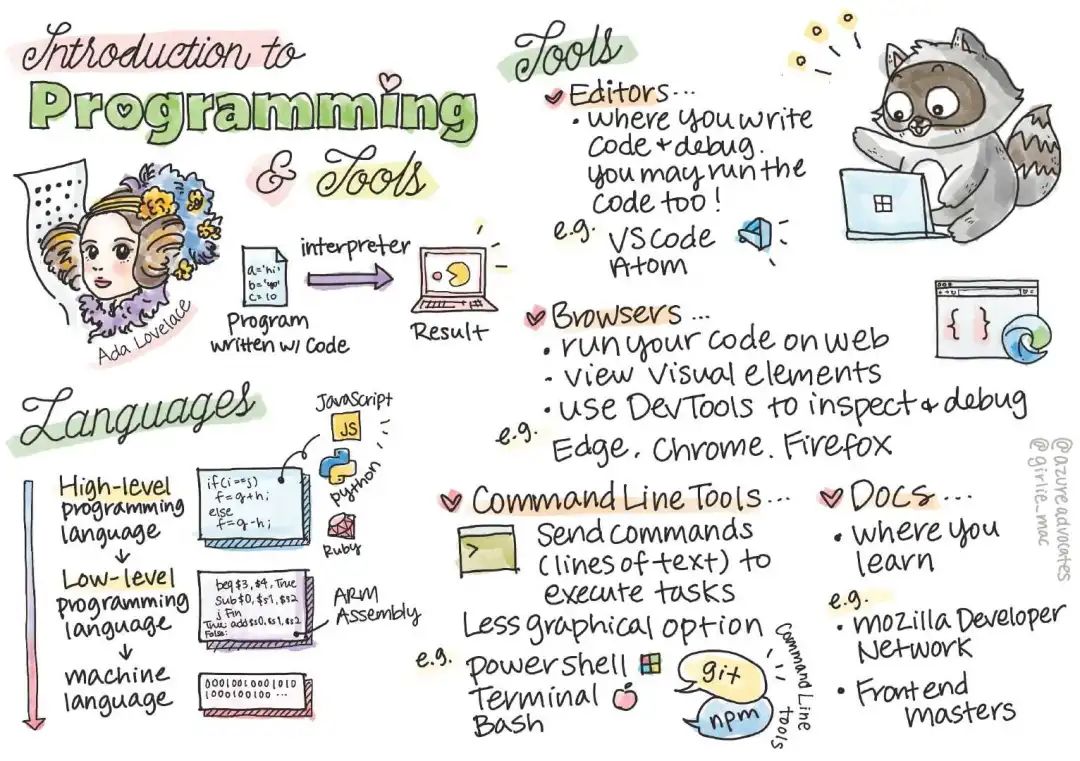 Introduction to
Programming
& Tools
Ada Lovelace
a='hi'
b='yo'
c=10
Program
written w/ Code
interpreter
Result
Languages
High-level
programming
language
Low-level
programming
language
machine
language
if(i==j)
f=g+h;
else
f=g-h;
JavaScript
JS
python
Ruby
beq $3,$4, True
Sub $0, $s1, $s2
j Fin
True: add $s0, $s1, $s2
False:
ARM
Assembly
00010010001010
1000100100 ...
Tools
Editors...
• where you write
code + debug.
you may run the
code too!
e.g. VS Code
Atom
Browsers ...
• run your code on web
- view visual elements
• use DevTools to inspect & debug
e.g. Edge, Chrome, Firefox
{ }
Command Line Tools ...
>
Send commands
(lines of text) to
execute tasks
Less graphical option
e.g. powershell
Terminal
Bash
git
npm
Command Line tools
Docs ...
• where you
learn
e.g.
• mozilla Developer
Network
• Frontend
masters
@azureadvocates
@girlie_mac